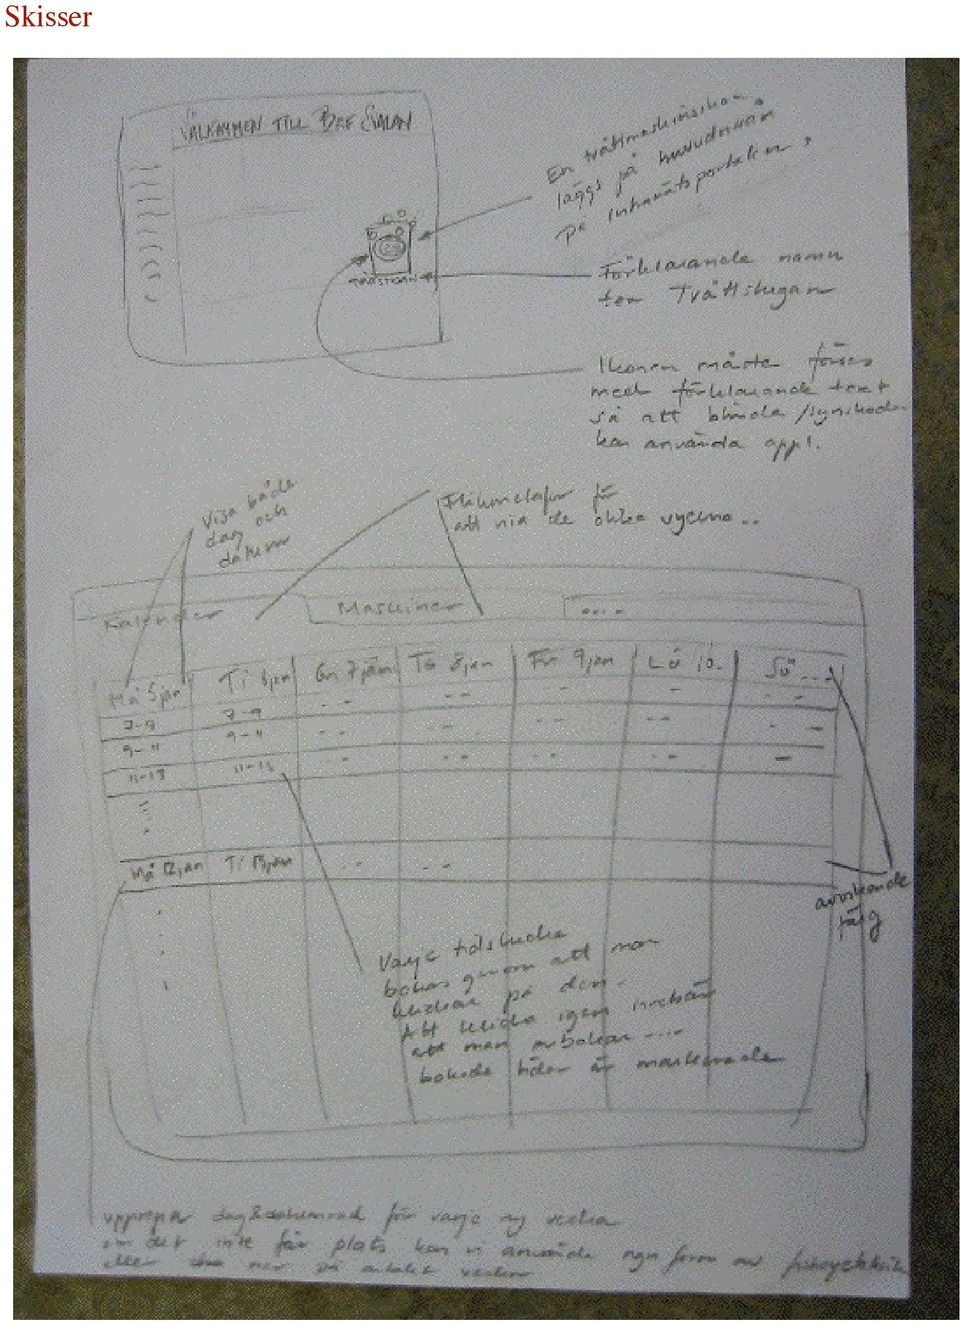 Skisser
VÄLKOMMEN TILL BRF SVALAN
En tvättmaskinsikon
läggs på huvudmenyn
på intranätsportalen
TVÄTTSTUGAN
Förklarande namn
tex Tvättstugan
Ikonen måste förses
med förklarande text
så att blinda/synskad.
kan använda appl.
Visa både
dag och
datum
Flikmetafor för
att nå de olika vyerna..
Kalender
Maskiner
....
Må 5 jan
Ti 6 jan
On 7 jan
To 8 jan
Fr 9 jan
Lö 10.
Sö ...
7-9
7-9
9-11
9-11
11-13
11-13
Må 12 jan
Ti 13 jan
avvikande
färg
Varje tidslucka
bokas genom att man
klickar på den.
Att klicka igen innebär
att man avbokar ....
bokade tider är markerade
upprepa dag&datumrad för varje ny vecka
om det inte får plats kan vi använda ngn form av fisheyeteknik
eller dra ner på antalet veckor